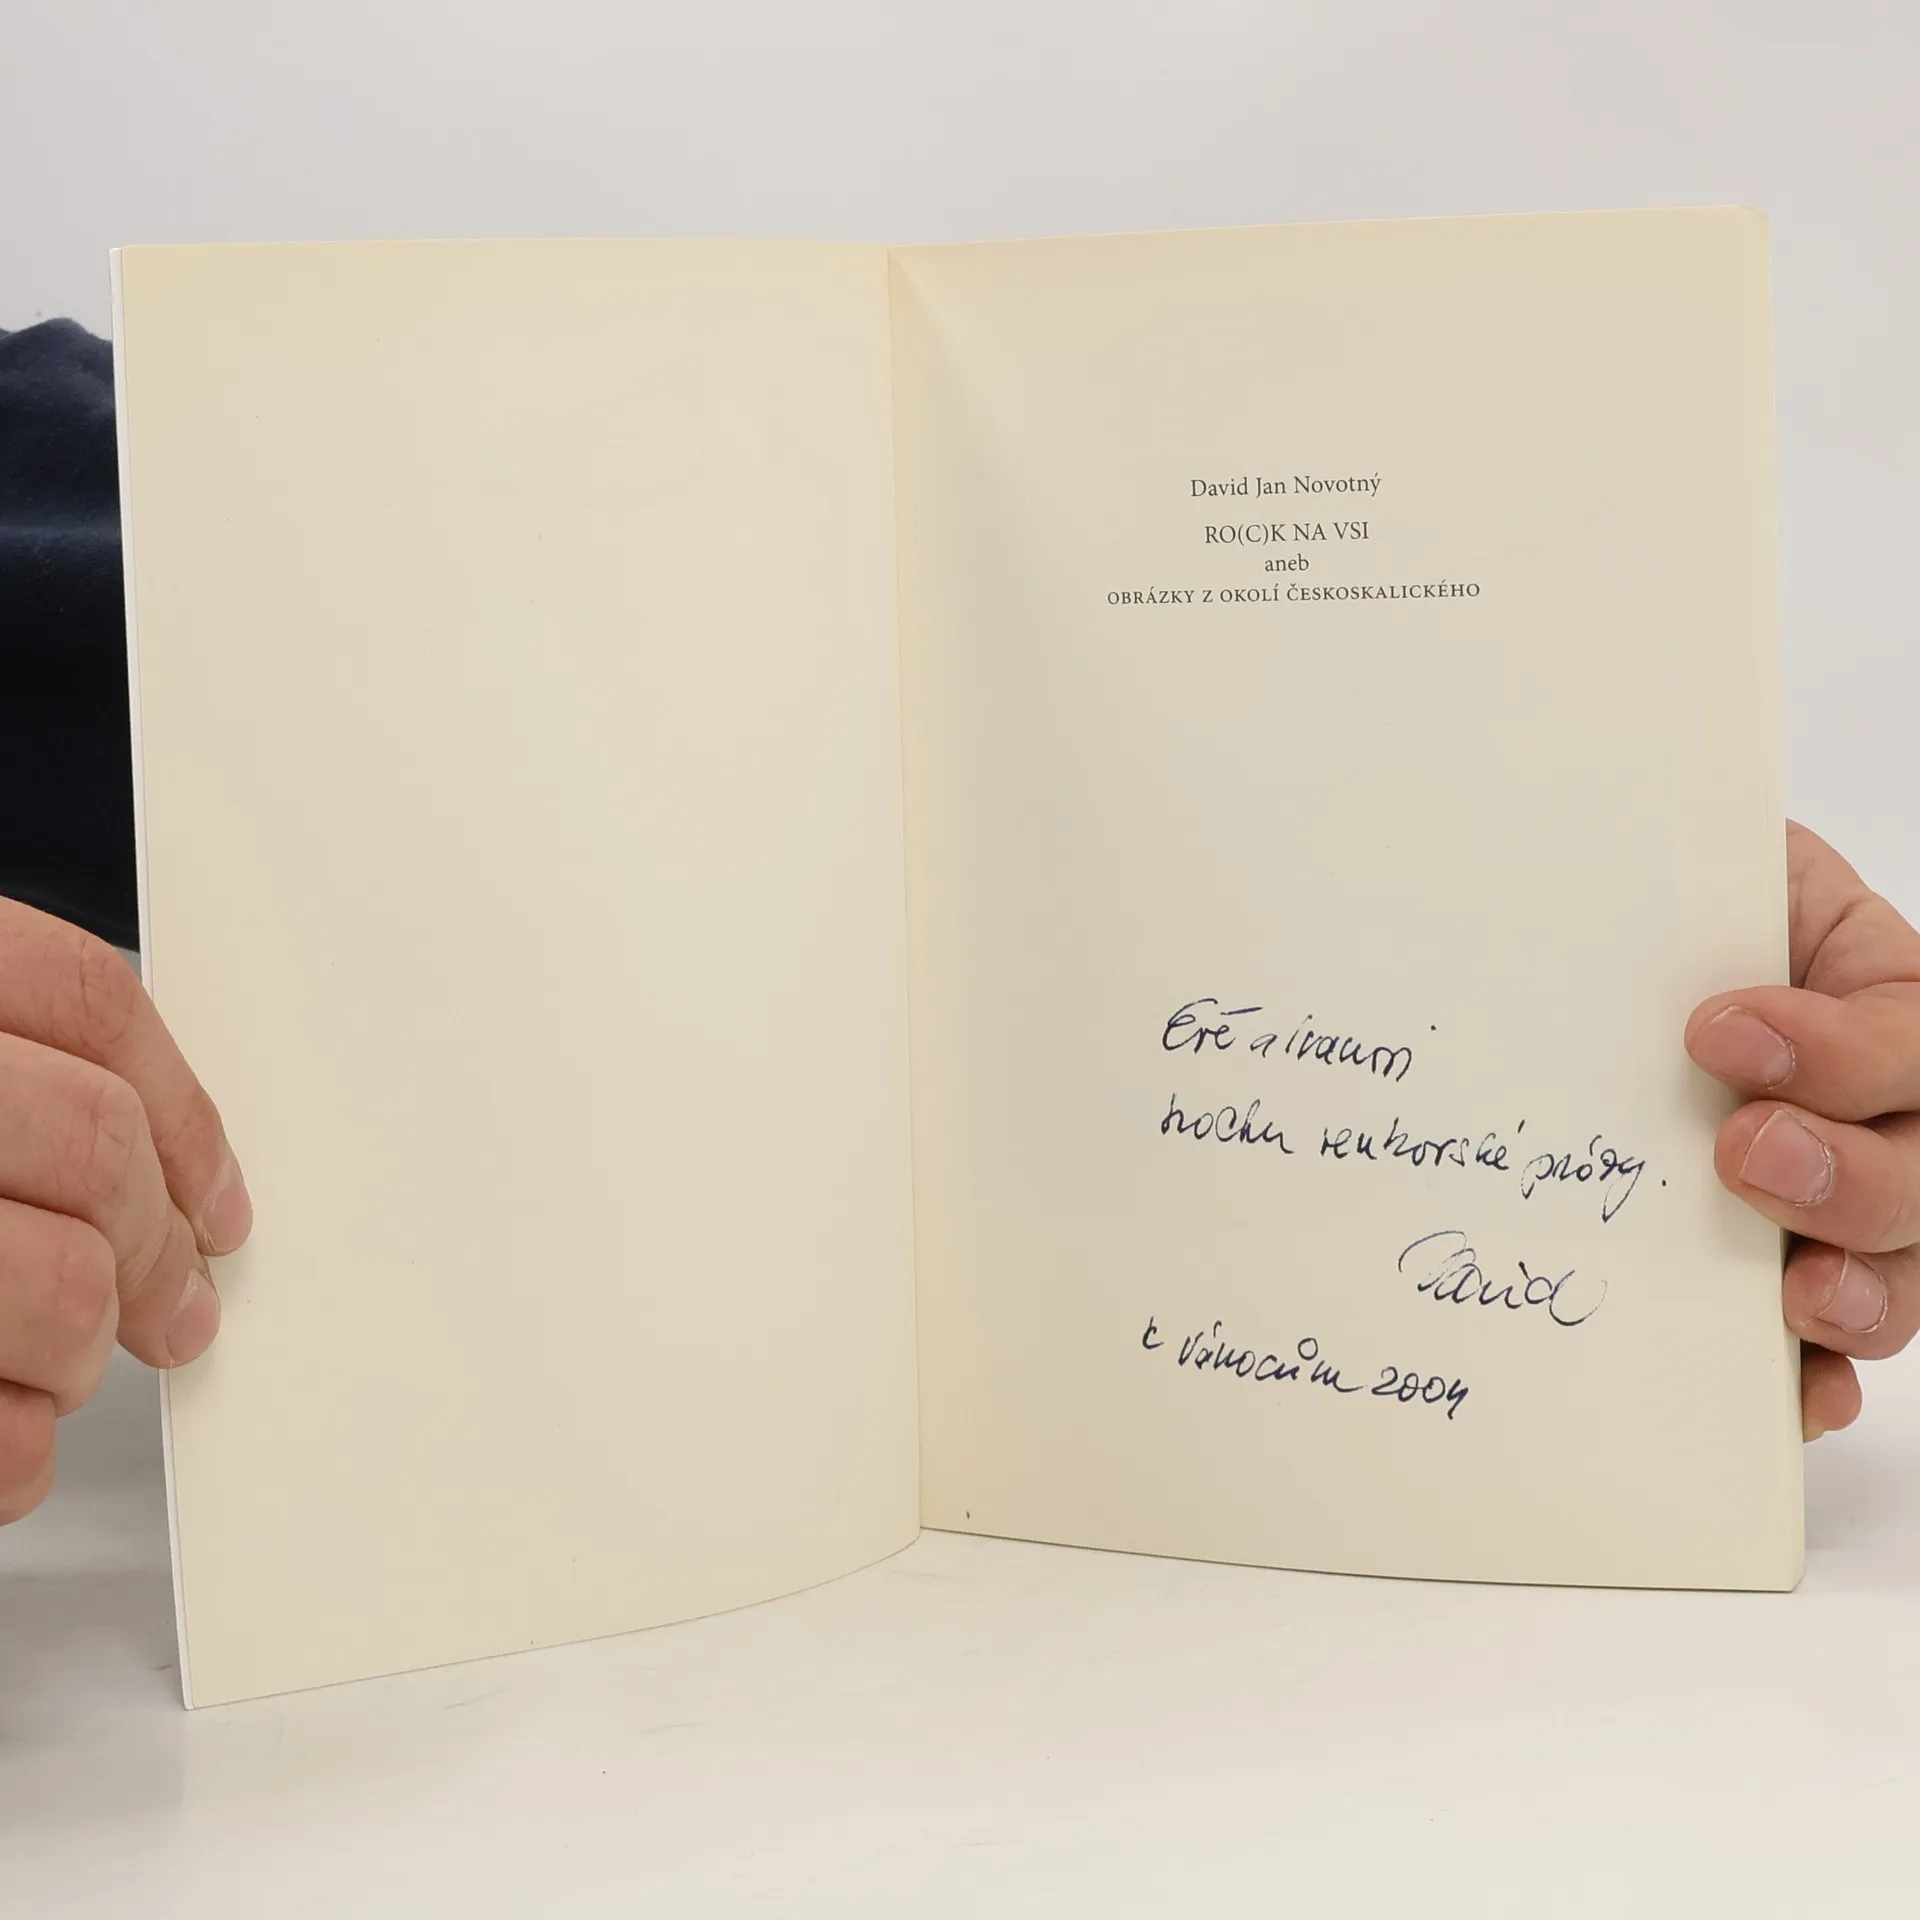 David Jan Novotný
RO(C)K NA VSI
aneb
OBRÁZKY Z OKOLÍ ČESKOSKALICKÉHO
Evě a Ivanovi
trochu venkovské prózy.
David
k Vánocům 2004